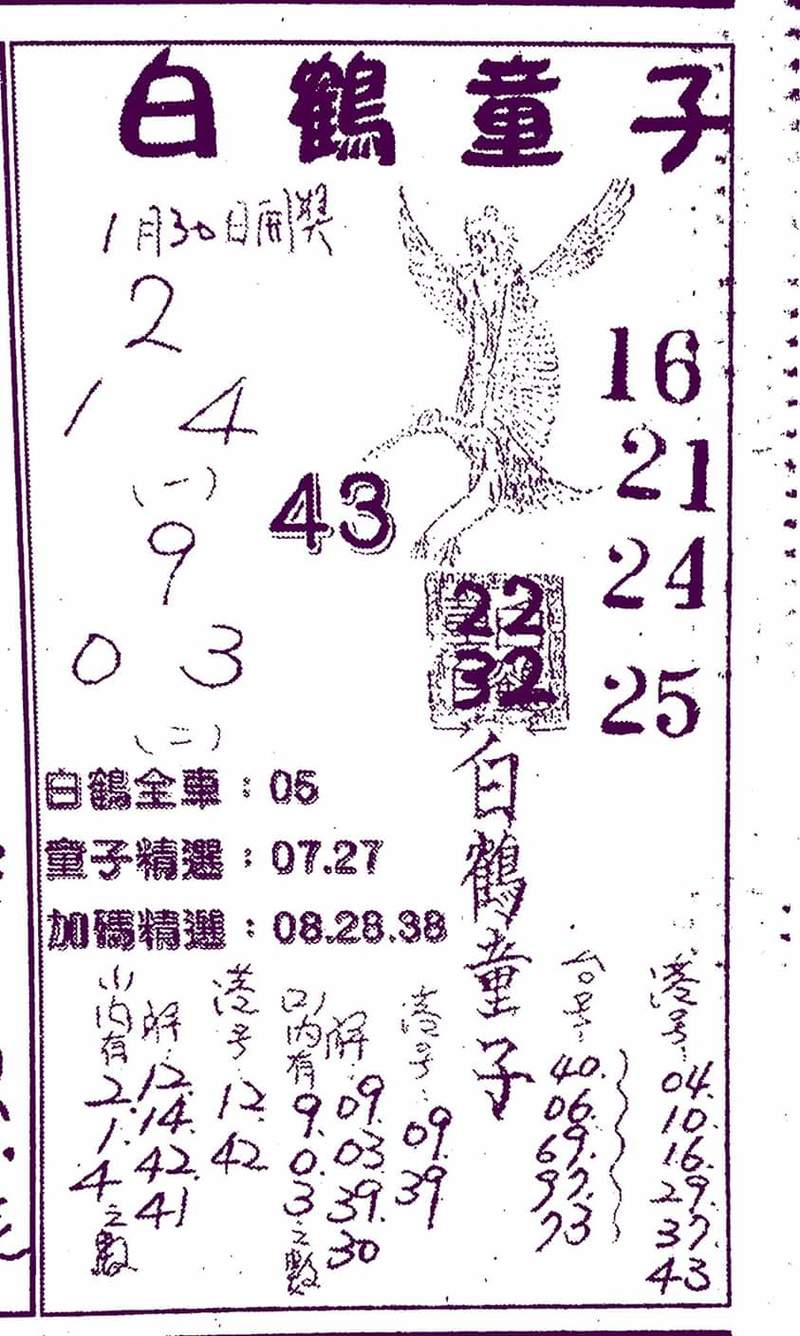 白鶴童子
1月30日開獎
2
1 4
(一)
9
0 3
(二)
43
16
21
24
25
22
32
白鶴全車：05
童子精選：07.27
加碼精選：08.28.38
白鶴童子
山內有
2.
1.
4
之數
解
12.
14.
42.
41
港号
12
42
口內有
9.
0.
3
之數
解
09.
03
39.
30
港号：
09
39
台号：
40.
06.
69.
97.
73
港号：
04.
10.
16.
29.
37
43